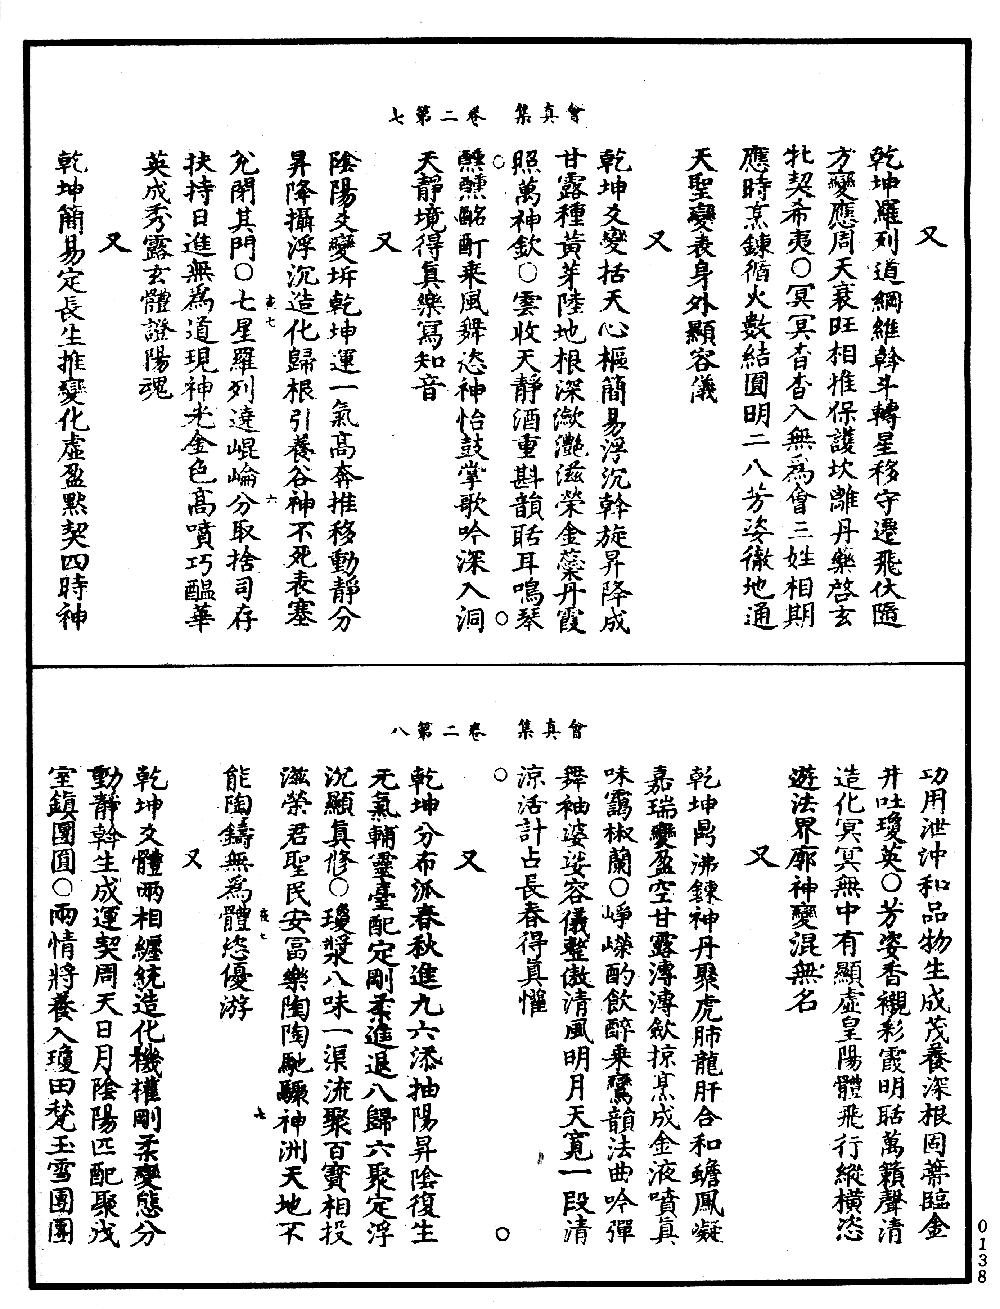 會真集　卷二第七
又
乾坤羅列道綱維斡斗轉星移守遷飛伏隨
方變應周天衰旺相推保護坎離丹藥啓玄
牝契希夷○冥冥杳杳入無爲會三姓相期
應時烹鍊循火數結圓明二八芳姿徹地通
天聖變表身外顯容儀
又
乾坤爻變括天心樞簡易浮沉斡旋昇降成
甘露種黃芽陸地根深瀲灔滋榮金藥丹霞
照萬神欽○雲收天靜酒重斟韻聒耳鳴琴
醺醺酩酊乘風舞恣神怡鼓掌歌吟深入洞
天靜境得眞樂寫知音
又
陰陽爻變坼乾坤運一氣高奔推移動靜分
昇降攝浮沉造化歸根引養谷神不死表塞
兌閉其門○七星羅列遶崐崘分取捨司存
扶持日進無爲道現神光金色高噴巧醞華
英成秀露玄體證陽魂
又
乾坤簡易定長生推變化虛盈點契四時神
會真集　卷二第八
功用泄沖和品物生成茂養深根固蔕臨金
井吐瓊英○芳姿香襯彩霞明聒萬籟聲清
造化冥冥無中有顯虛皇陽體飛行縱橫恣
遊法界廓神變混無名
又
乾坤鼎沸鍊神丹聚虎肺龍肝合和蟾鳳凝
嘉瑞變盈空甘露漙漙歛掠烹成金液噴眞
味靄椒蘭○崢嶸酌飲醉乘鸞韻法曲吟彈
舞袖婆娑容儀整傲清風明月天寬一段清
涼活計占長春得眞懽
又
乾坤分布泒春秋進九六添抽陽昇陰復生
元氣輔靈臺配定剛柔進退八歸六聚定浮
沉顯眞修○瓊漿八味一渠流聚百寶相投
滋榮君聖民安富樂陶陶馳驟神洲天地不
能陶鑄無爲體恣優游
又
乾坤爻體兩相纏統造化機權剛柔變態分
動靜斡生成運契周天日月陰陽匹配聚戊
室鎮團圓○兩情將養入瓊田㐂玉雪團團
0138